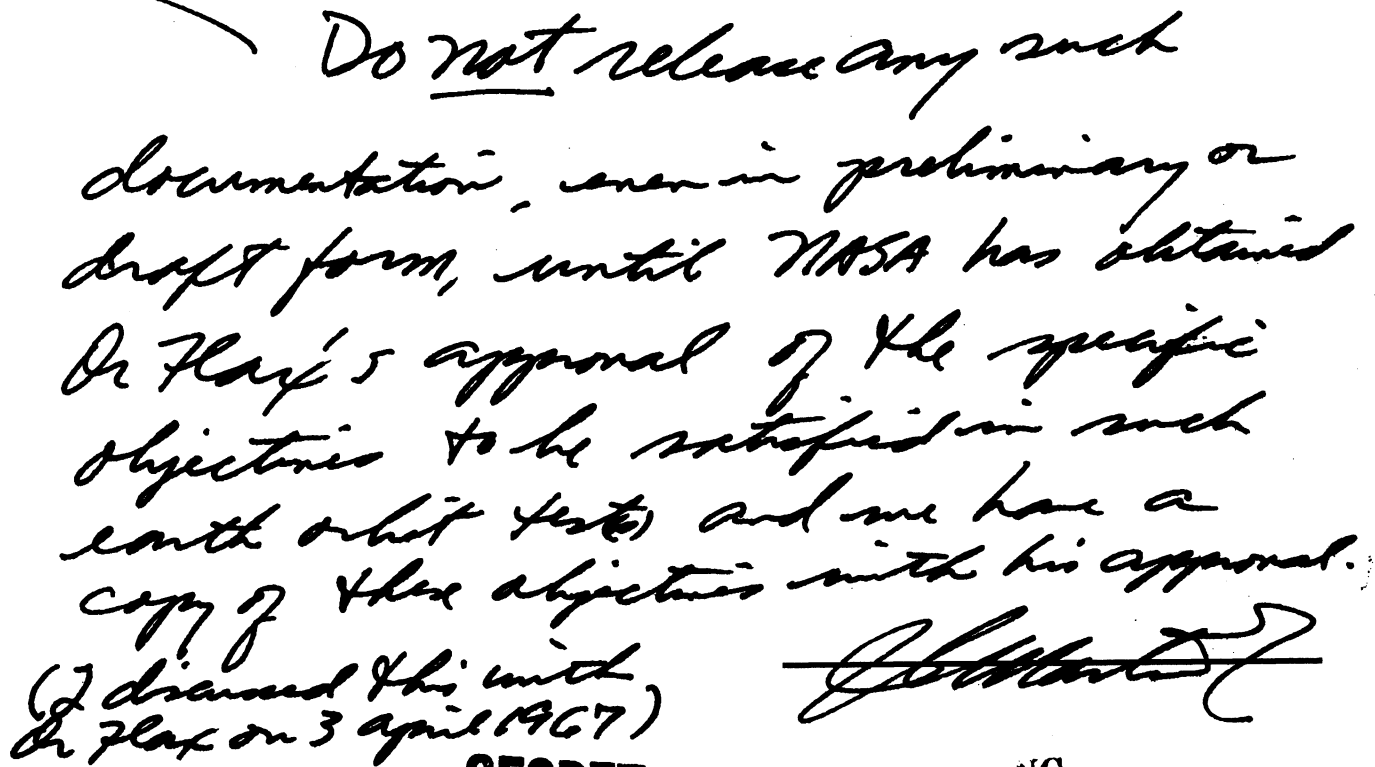 Do not release any such
documentation, even in preliminary or
draft form, until NASA has obtained
Dr Flax's approval of the specific
objectives to be satisfied in such
earth orbit test(s) and we have a
copy of these objectives with his approval.
(I discussed this with
Dr Flax on 3 April 1967)